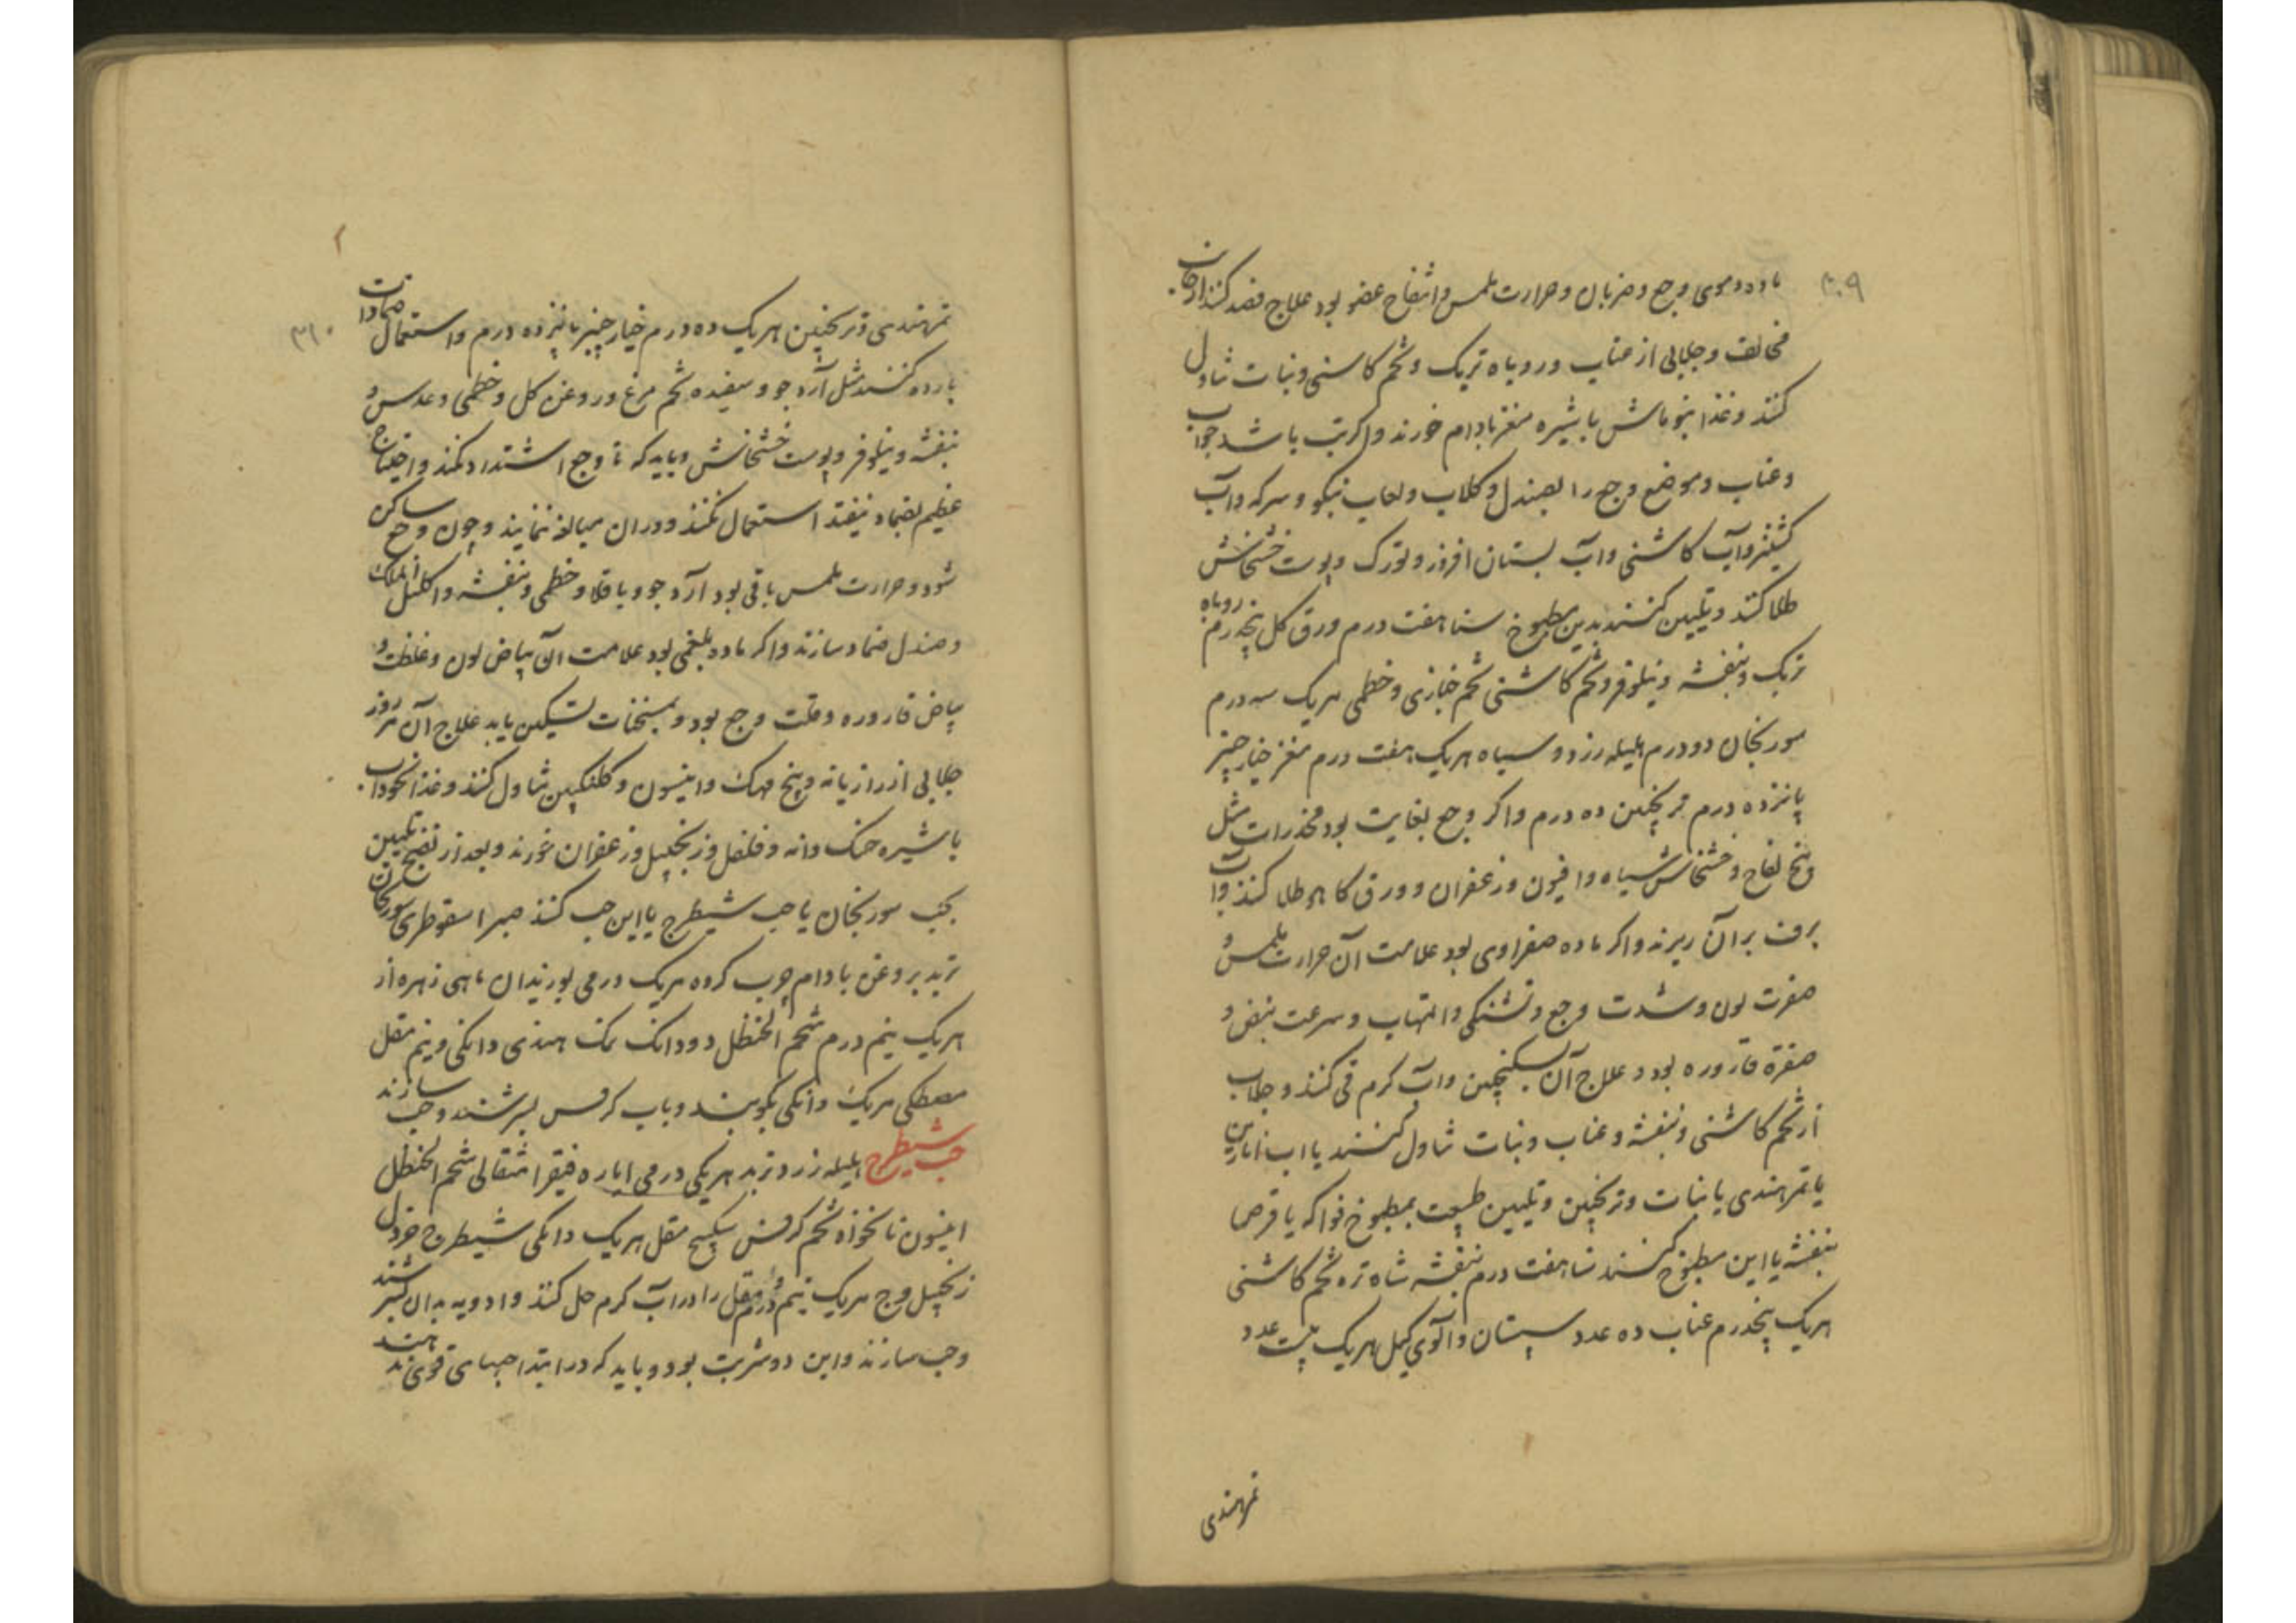 ۳۰۹
ماده دموی وجع و ضربان و حرارت ملمس و انتفاخ عضو بود علاج فصد کنند از جانب
مخالف و جلابی از عناب و روباه تربک و تخم کاسنی و نبات تناول
کنند و غذا بنوماش با شیره مغز بادام خورند و اگر تب باشد جواب
و عناب و موضع وجع را بصندل و کلاب و لعاب نیکو و سرکه و آب
کشنیز و آب کاشنی و آب بستان افروز و تورک و پوست خشخاش
طلا کنند و تلیین کنند بدین مطبوخ سنا هفت درم ورق کل پنجدرم روباه
تربک و بنفشه و نیلوفر و تخم کاشنی تخم خبازی و خطمی هریک سه درم
سورنجان دو درم هلیله زرد و سیاه هریک هفت درم مغز خیار چنبر
پانزده درم ترنجبین ده درم و اکر وجع بغایت بود مخدرات مثل
و بنج لفاح و خشخاش سیاه و افیون و زعفران و ورق کاهو طلا کنند و آب
برف بر آن ریزند و اکر ماده صفراوی بود علامت آن حرارت ملمس و
صفرت لون و شدت وجع و تشنکی و التهاب و سرعت نبض و
صفرة قاروره بود و علاج آن بسکنجبین و آب کرم قی کنند و جلاب
از تخم کاشنی و بنفشه و عناب و نبات تناول کنند یا اب انارین
یا تمرهندی یا نبات و ترنجبین و تلیین طبیعت بمطبوخ فواکه یا قرص
بنفشه یا این مطبوخ کنند سنا هفت درم بنفشه شاه تره تخم کاشنی
هریک پنجدرم عناب ده عدد سپستان و آلوی کیل هریک بیست عدد
تمرهندی
۳۱۰
تمرهندی و ترنجبین هریک ده درم خیار چنبر پانزده درم و استعمال ضمادات
بارده کنند مثل آرد جو و سفیده تخم مرغ و روغن کل و خطمی و عدس و
بنفشه و نیلوفر و پوست خشخاش و باید که تا وجع اشتداد نکند و احتیاج
عظیم بضماد نیفتد استعمال نکنند و در ان مبالغه ننمایند و چون وجع ساکن
شود و حرارت ملمس باقی بود آرد جو و باقلا و خطمی و بنفشه و اکلیل الملک
و صندل ضماد سازند و اکر ماده بلغمی بود علامت آن بیاض لون و غلظت و
بیاض قاروره و قلت وجع بود و بمسخنات تسکین یابد علاج آن هر روز
جلابی از رازیانه و بیخ مهک و انیسون و کلنکبین تناول کنند و غذا نخوداب
با شیره خسک دانه و فلفل و زنجبیل و زعفران خورند و بعد از نضج تلیین
بحب سورنجان یا حب شیطرج یا این حب کنند صبر اسقوطری سورنجان
تربد بروغن بادام چرب کرده هریک درمی بوزیدان ماهی زهره از
هریک نیم درم شحم الحنظل دو دانک نمک هندی دانکی و نیم مقل
مصطکی هریک دانکی بکوبند و باب کرفس بسرشند و حب سازند
حب شیطرج هلیله زرد و تربد هریکی درمی ایاره فیقرا مثقالی شحم الحنظل
انیسون نانخواه تخم کرفس سکبینج مقل هریک دانکی شیطرج خردل
زنجبیل و وج هریک نیم درم و مقل را در آب کرم حل کنند و ادویه بدان بسرشند
و حب سازند و این دو شربت بود و باید که در ابتدا حبهای قوی ندهند